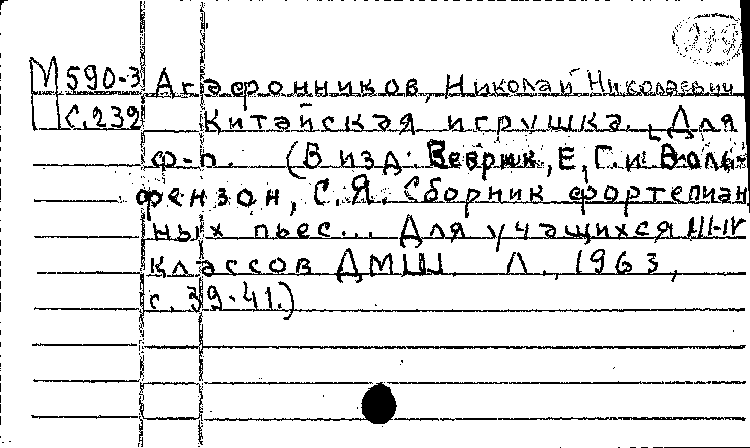 239
М590-3 Агафонников, Николай Николаевич
С.232 Китайская игрушка. [Для
ф-п. (В изд: Веврик, Е, Г. и Воль-
фензон, С. Я. Сборник фортепиан
ных пьес... Для учащихся III-IV
классов ДМШ. Л., 1963,
с. 39-41.)